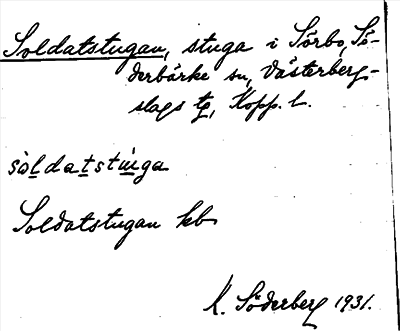 Soldatstugan, stuga i Sörbo, Sö-
derbärke sn, Västerbergs-
slags tg, Kopp. l.
sòldatstùga
Soldatstugan kb
K. Söderberg 1931.